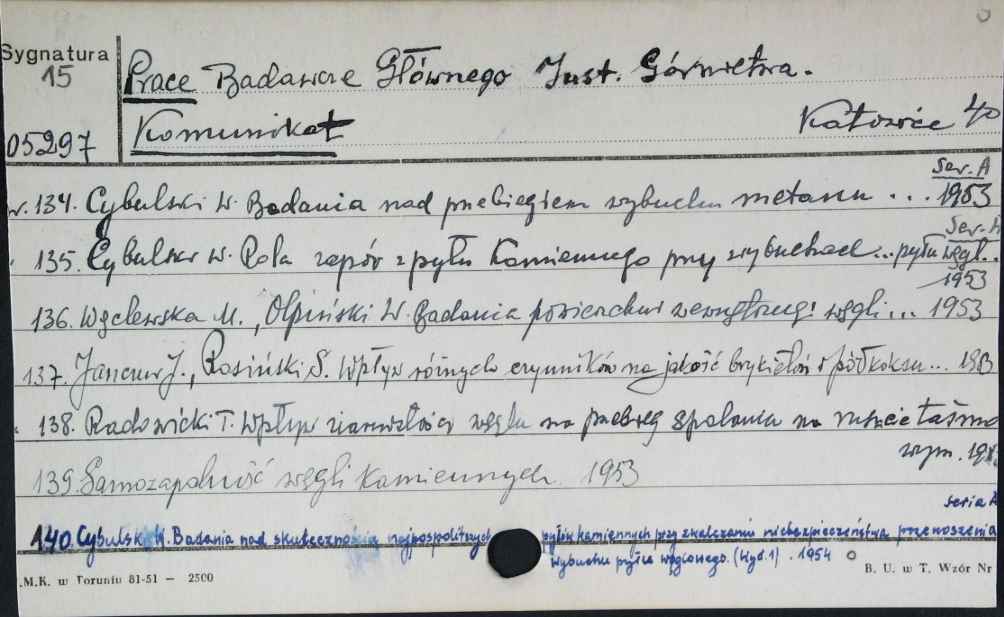 Sygnatura
15
Prace Badawcze Głównego Inst. Górnictwa.
05297
Komunikat
Katowice 40
Ser. A
134. Cybulski W. Badania nad przebiegiem wybuchu metanu ... 1953
Ser. A
135. Cybulski W. Rola zapór z pyłu kamiennego przy wybuchach ... pyłu węgl..
1953
136. Węclewska M., Olpiński W. Badania powierzchni wewnętrznej węgli ... 1953
137. J., Rosiński S. Wpływ różnych czynników na jakość brykietów i półkoksu ... 1953
138. Radowicki T. Wpływ ziarnistości węgla na przebieg spalania na ruszcie taśmo
wym.
139. Samozapalność węgli kamiennych. 1953
seria A
140. Cybulski W. Badania nad skutecznością najpospolitszych pyłów kamiennych przy zwalczaniu niebezpieczeństwa przenoszenia
wybuchu pyłu węglowego. (Wyd. 1) . 1954
.M.K. w Toruniu 81-51 — 2500
B. U. w T. Wzór Nr